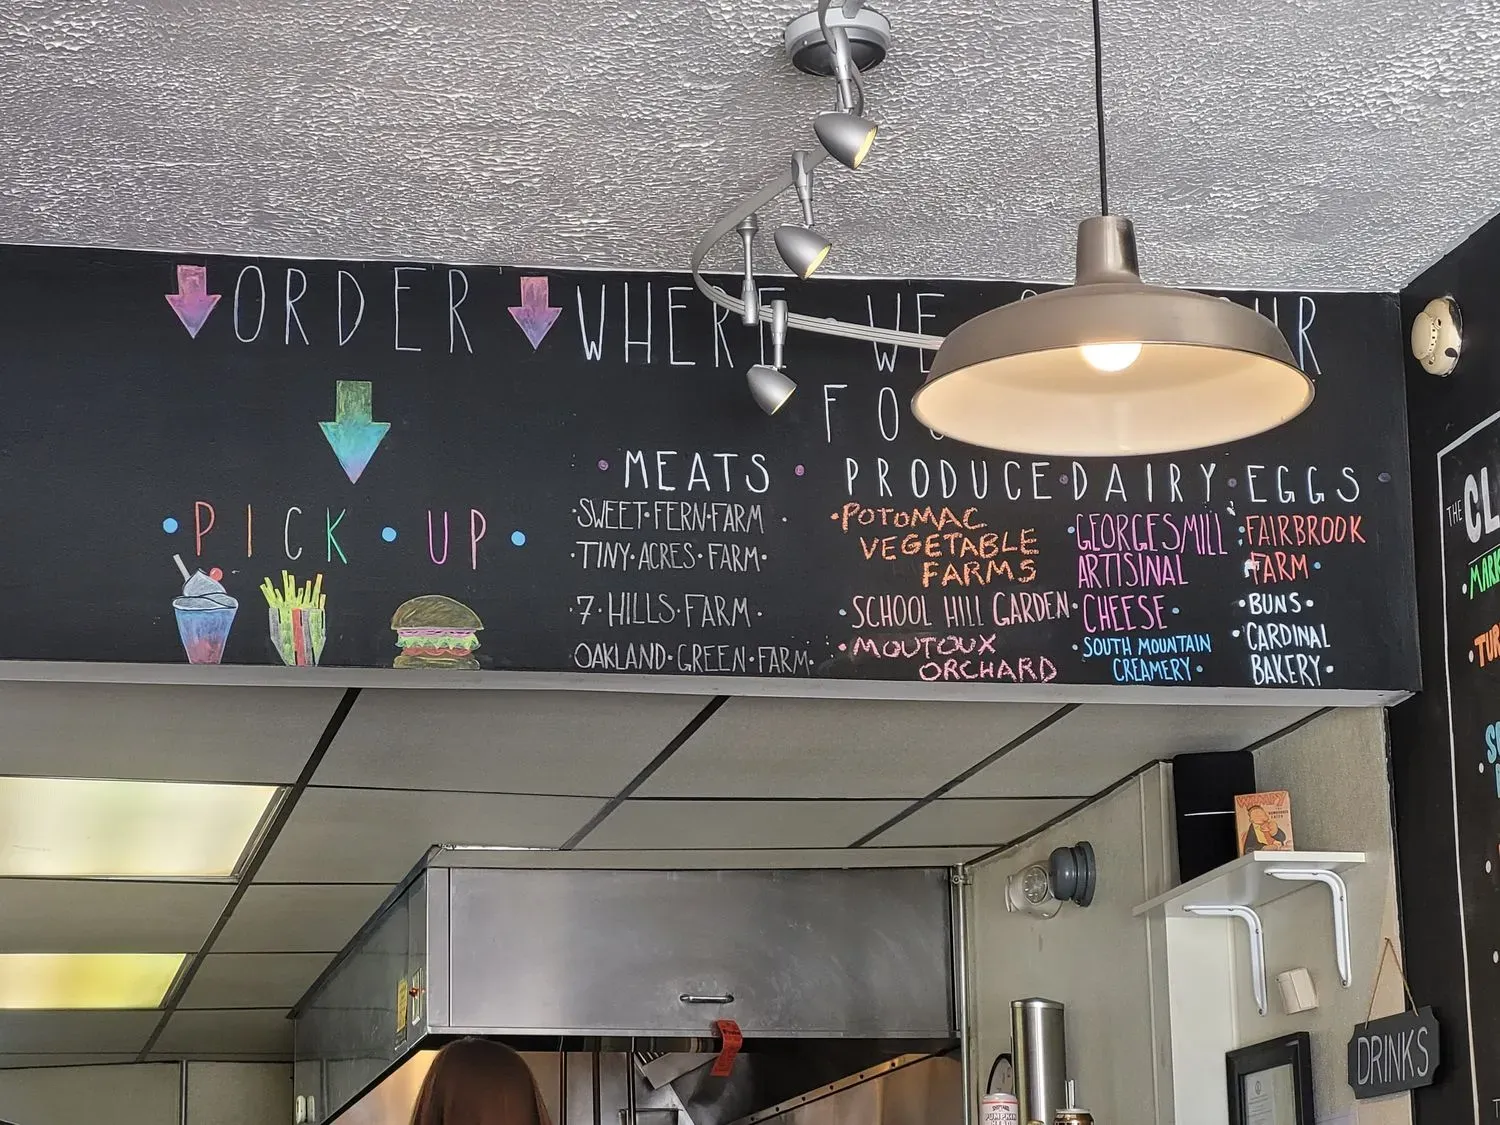 ORDER
WHERE WE
PICK • UP
MEATS
• SWEET • FERN • FARM •
• TINY • ACRES • FARM •
• 7 • HILLS • FARM •
OAKLAND • GREEN • FARM •
PRODUCE
• POTOMAC
VEGETABLE
FARMS
• SCHOOL HILL GARDEN •
• MOUTOUX
ORCHARD
DAIRY
• GEORGESMILL
ARTISINAL
CHEESE •
• SOUTH MOUNTAIN
CREAMERY •
EGGS
• FAIRBROOK
FARM •
• BUNS •
• CARDINAL
BAKERY •
THE
DRINKS
WIMPY